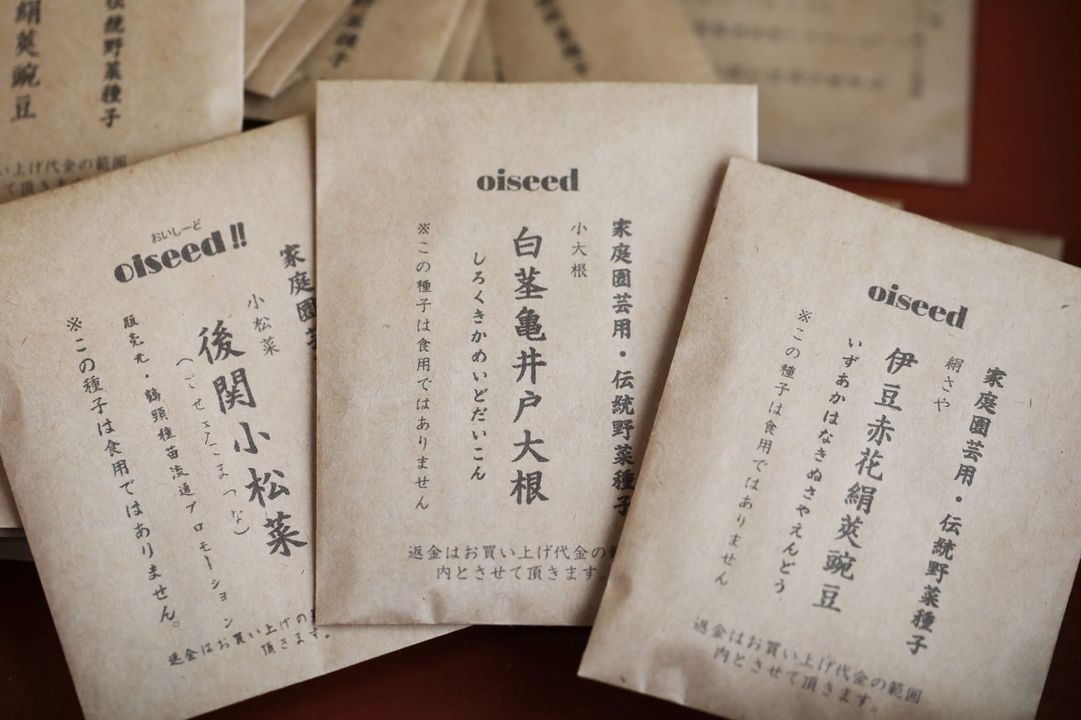 絹莢豌豆
伝統野菜種子
い上げ代金の範囲
て頂きます
おいしーど
oiseed!!
家庭園芸
小松菜
後関小松菜
(ごせきこまつな)
販売元・鶴頸種苗流通プロモーション
※この種子は食用ではありません。
返金はお買い上げの
頂きます。
oiseed
家庭園芸用・伝統野菜種子
小大根
白茎亀井戸大根
しろくきかめいどだいこん
※この種子は食用ではありません
返金はお買い上げ代金の範
内とさせて頂きます。
oiseed
家庭園芸用・伝統野菜種子
絹さや
伊豆赤花絹莢豌豆
いずあかはなきぬさやえんどう
※この種子は食用ではありません
返金はお買い上げ代金の範囲
内とさせて頂きます。